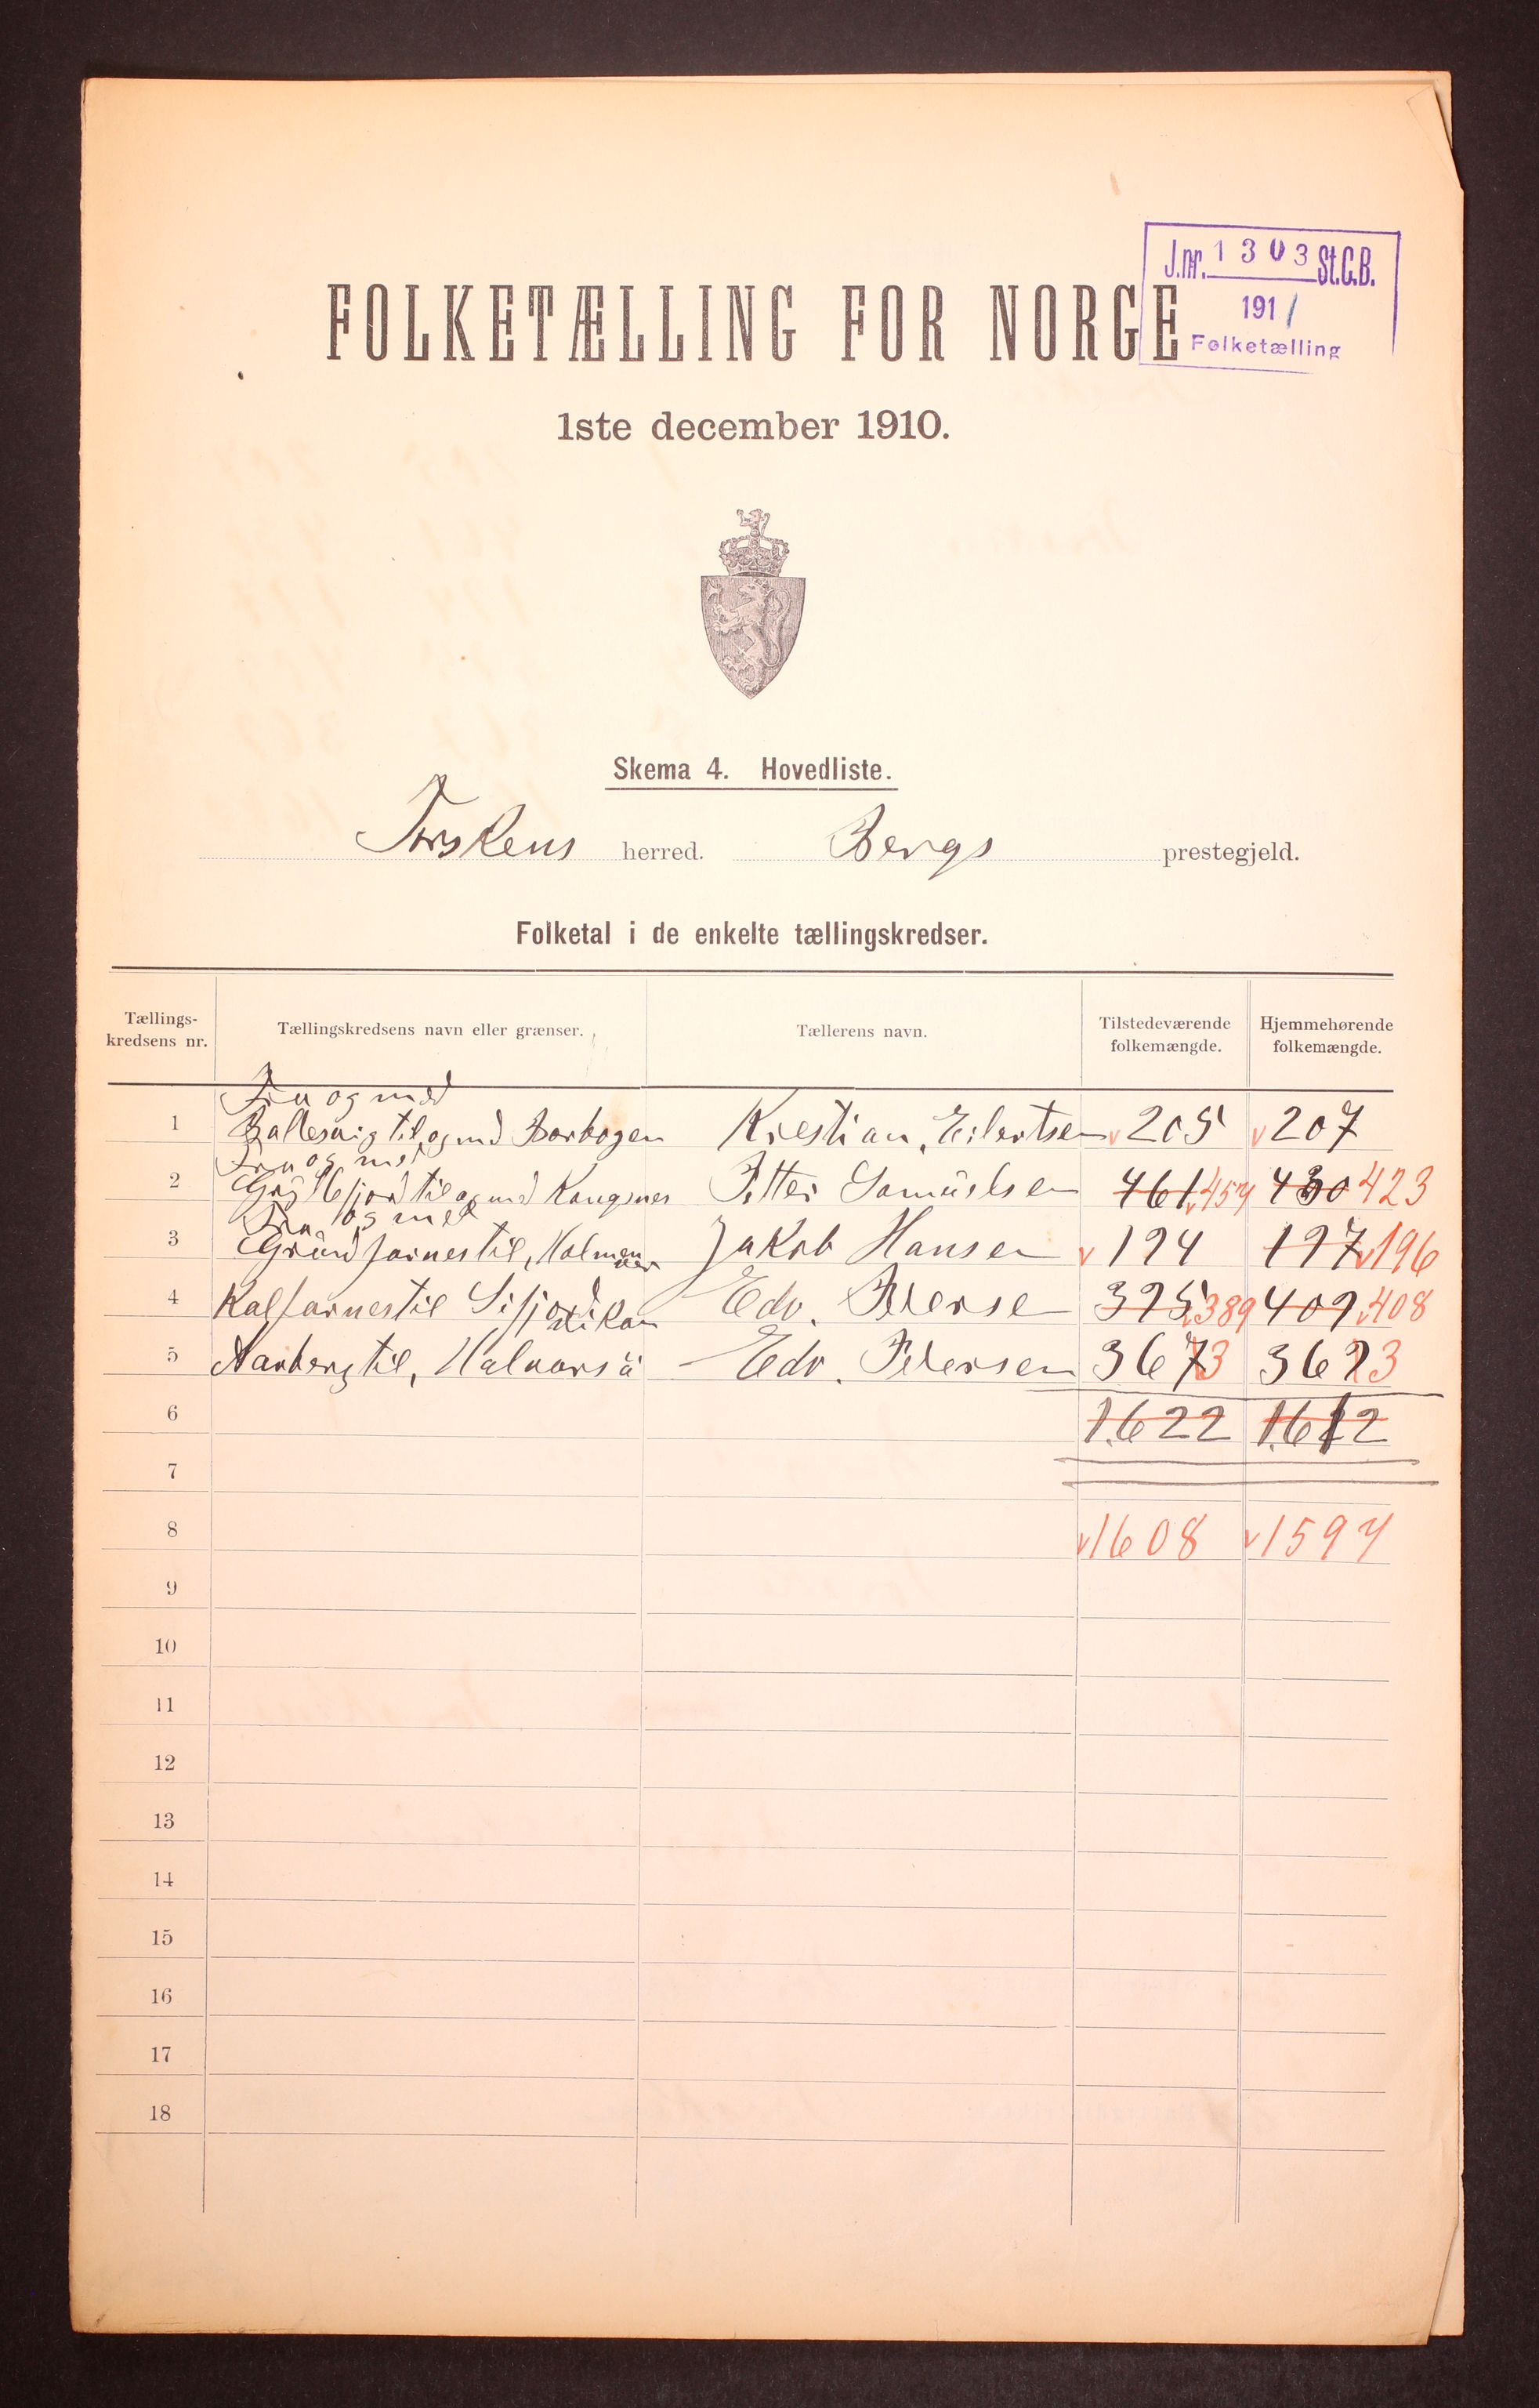 J.nr. 1303 St.C.B.
1911
Folketælling
FOLKETÆLLING FOR NORGE
1ste december 1910.
Skema 4. Hovedliste.
Torskens herred. Bergs prestegjeld.
Folketal i de enkelte tællingskredser.
Tællings-kredsens nr. Tællingskredsens navn eller grænser. Tællerens navn. Tilstedeværende folkemængde. Hjemmehørende folkemængde.
Fra og med
1 Ballesvig til og med Borbogen Kristian Eilertsen 205 207
Fra og med
2 Gryllefjord til og med Kongsnes Petter Samuelsen 461 457 430 423
Fra og med
3 Grundfarnes til, Holmen Jakob Hansen 194 197 196
4 Kalfarnes til Sifjord Edv. Petersen 395 389 409 408
5 Aarberg til, Halvarsö Edv. Petersen 3673 3693
6 1622 1612
7
8 1608 1597
9
10
11
12
13
14
15
16
17
18